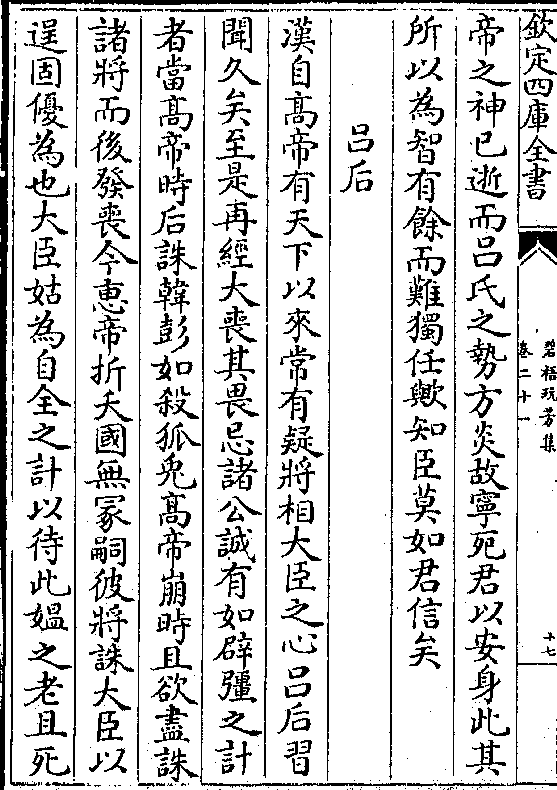 欽定四庫全書
碧梧玩芳集
卷二十一
十七
帝之神已逝而呂氏之勢方炎故寧死君以安身此其
所以為智有餘而難獨任歟知臣莫如君信矣
呂后
漢自髙帝有天下以來常有疑將相大臣之心吕后習
聞久矣至是再經大喪其畏忌諸公誠有如辟彊之計
者當髙帝時后誅韓彭如殺狐兎髙帝崩時且欲盡誅
諸將而後發喪今恵帝折夭國無冡嗣彼將誅大臣以
逞固優為也大臣姑為自全之計以待此媪之老且死